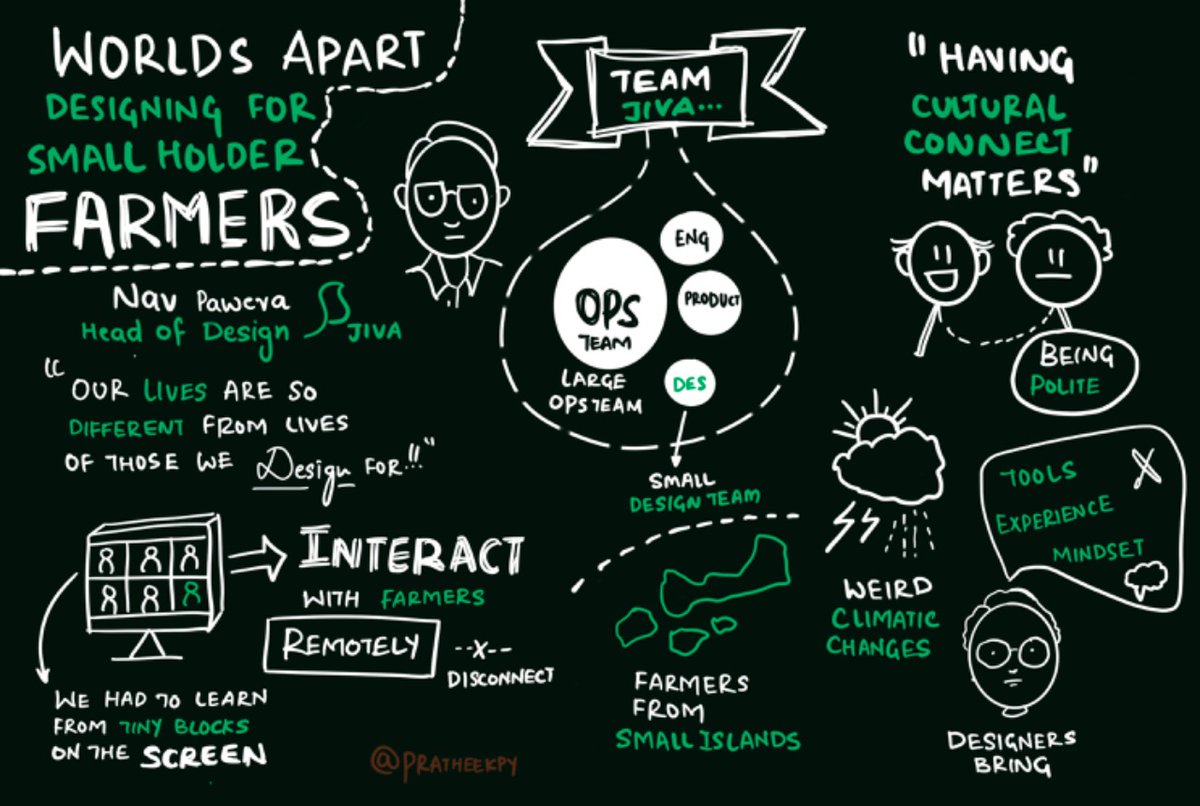 WORLDS APART
DESIGNING FOR
SMALL HOLDER
FARMERS
Nav Pawera
Head of Design JIVA
"OUR LIVES ARE SO
DIFFERENT FROM LIVES
OF THOSE WE Design FOR!!"
INTERACT
WITH FARMERS
REMOTELY
--X--
DISCONNECT
WE HAD TO LEARN
FROM TINY BLOCKS
ON THE SCREEN
@PRATHEEKPY
TEAM
JIVA...
ENG
OPS
TEAM
PRODUCT
DES
LARGE
OPS TEAM
SMALL
DESIGN TEAM
FARMERS
FROM
SMALL ISLANDS
"HAVING
CULTURAL
CONNECT
MATTERS"
BEING
POLITE
WEIRD
CLIMATIC
CHANGES
TOOLS
EXPERIENCE
MINDSET
DESIGNERS
BRING